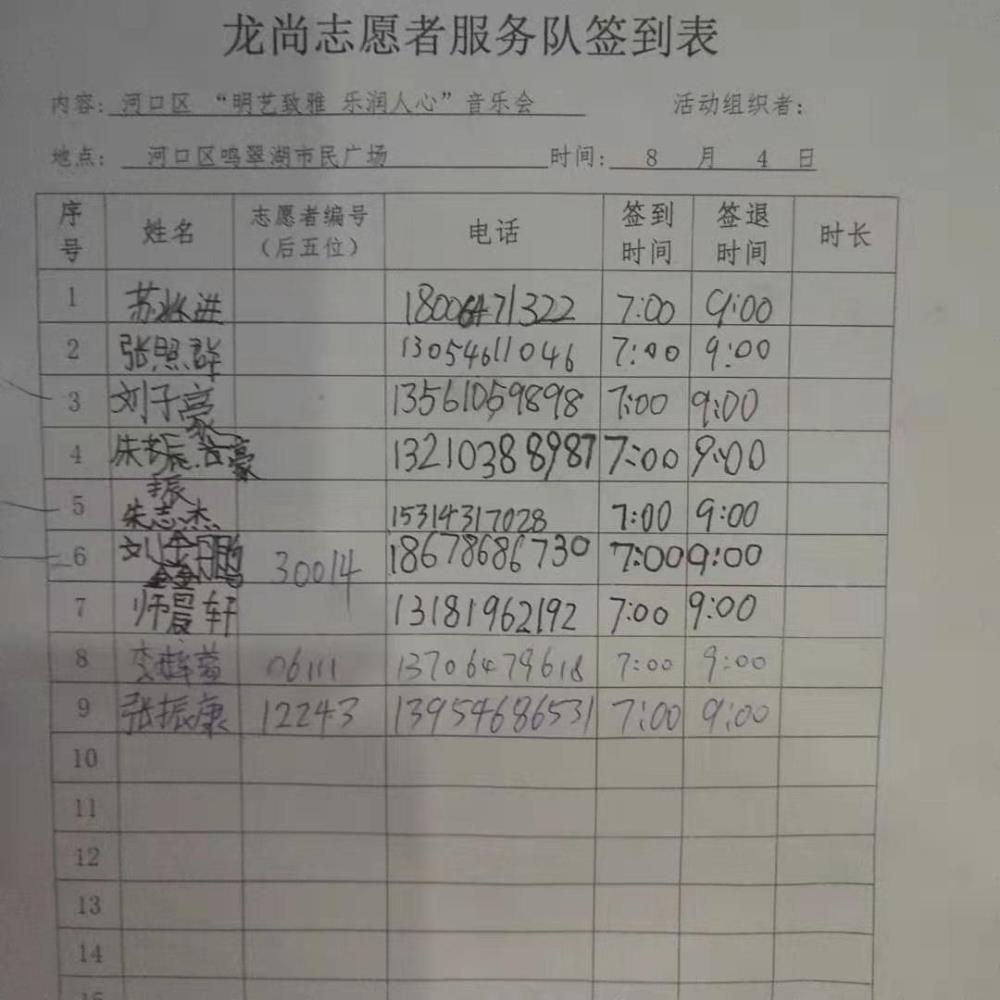 龙尚志愿者服务队签到表
内容: 河口区 “明艺致雅 乐润人心”音乐会 活动组织者:
地点: 河口区鸣翠湖市民广场 时间: 8 月 4 日
序号 姓名 志愿者编号（后五位） 电话 签到时间 签退时间 时长
1 苏 进 18006471322 7:00 9:00
2 张照群 13054611046 7:00 9:00
3 刘子豪 13561059898 7:00 9:00
4 朱振豪 13210388987 7:00 9:00
5 朱志杰 15314317028 7:00 9:00
6 刘金鹏 30014 18678686730 7:00 9:00
7 师晨轩 13181962192 7:00 9:00
8 李 06111 13706479618 7:00 9:00
9 张振康 12243 13954686531 7:00 9:00
10
11
12
13
14